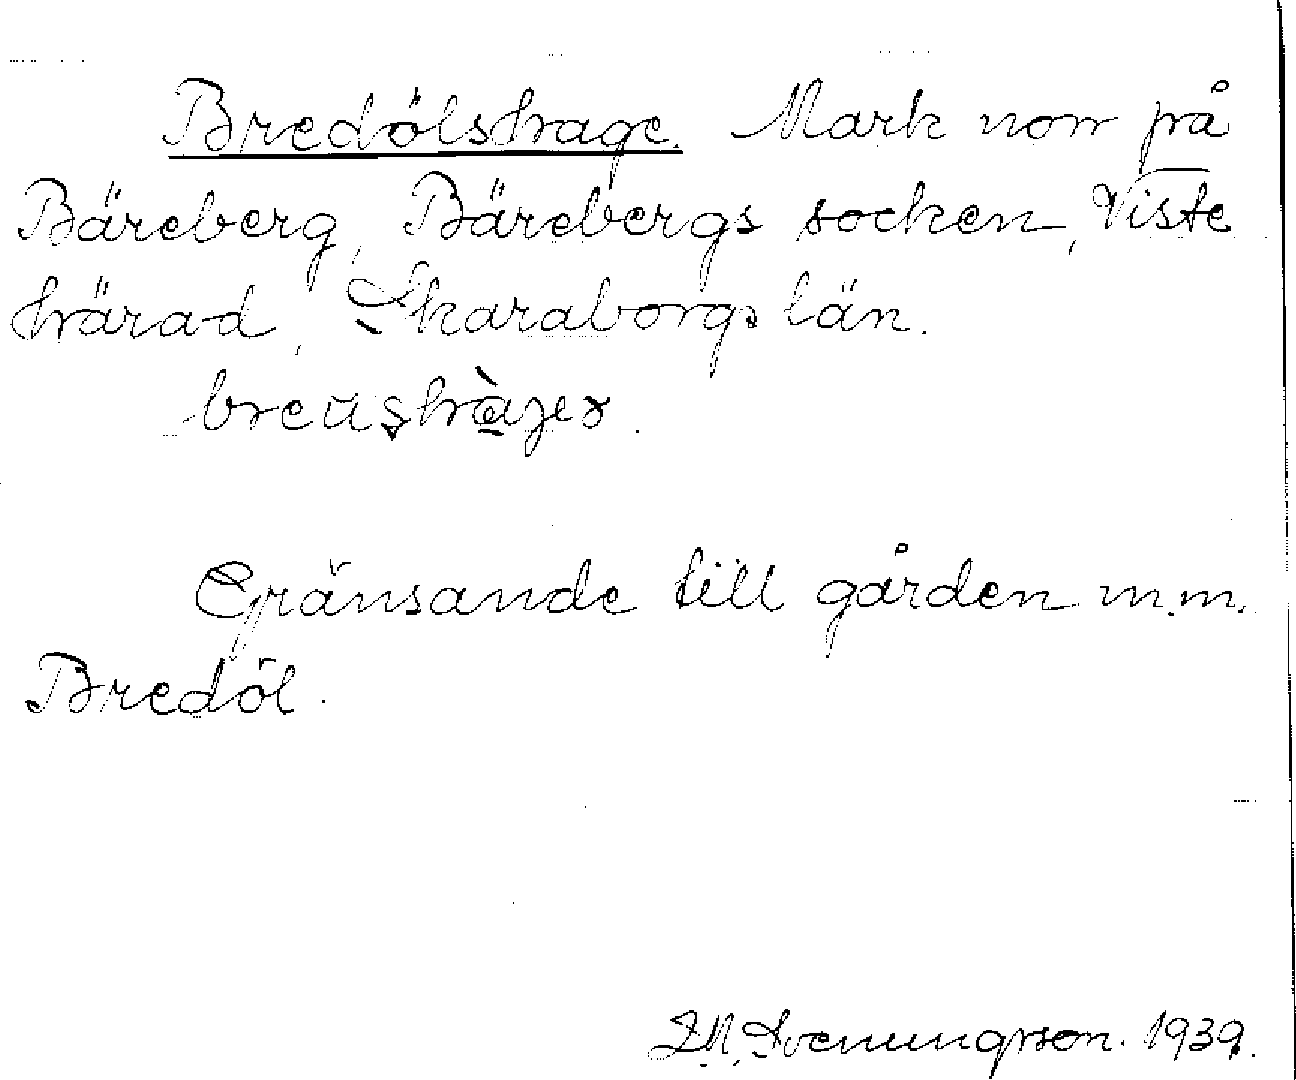 Bredölshage. Mark norr på
Bäreberg, Bärebergs socken, Viste
härad, Skaraborgs län.
Gränsande till gården m.m.
Bredöl.
Svenungsson. 1939.